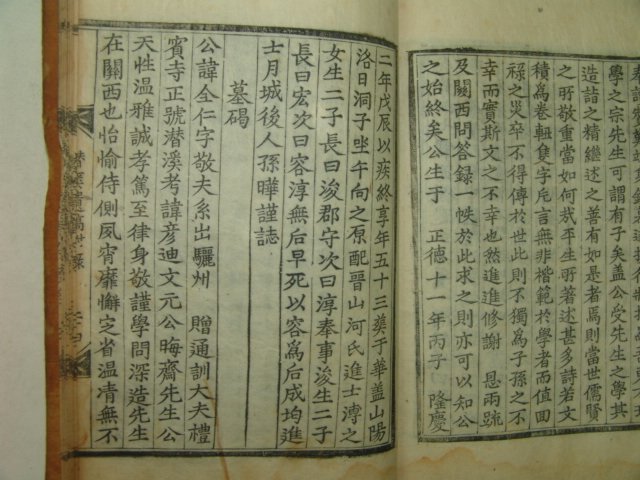 學之宗先生可謂有子矣公受先生之學其
造詣之精繼述之善有如是者焉則當世儒賢
之所敬重當如何哉平生所著述甚多詩若文
積爲卷軸隻字片言無非楷範於學者而值回
祿之災卒不得傳於世此則不獨爲子孫之不
幸而實斯文之不幸也然進進修謝 恩兩疏
及關西問答録一帙於此求之則亦可以知公
之始終矣公生于 正德十一年丙子 隆慶
二年戊辰以疾終享年五十三葬于華盖山陽
洛日洞子坐午向之原配晉山河氏進士溥之
女生二子長曰浚郡守次曰淳奉事浚生二子
長曰宏次曰容淳無后早死以容爲后成均進
士月城後人孫曄謹誌
墓碣
公諱全仁字敬夫系出驪州 贈通訓大夫禮
賓寺正號潜溪考諱彦迪文元公晦齋先生公
天性温雅誠孝篤至律身敬謹學問深造先生
在關西也怡愉侍側夙宵靡懈定省温凊無不